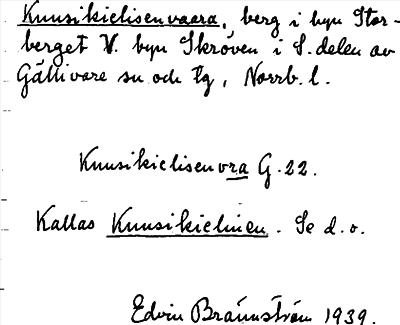 Kuusikielisenvaara, berg i byn Stor-
berget V. byn Skröven i S. delen av
Gällivare sn och tg, Norrb. l.
Kuusikielisenvra G. 22.
Kallas Kuusikielinen. Se d. o.
Edvin Brännström 1939.